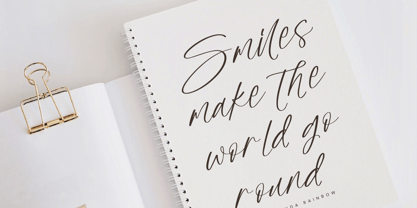 Smiles
make the
world go
round
RAINBOW